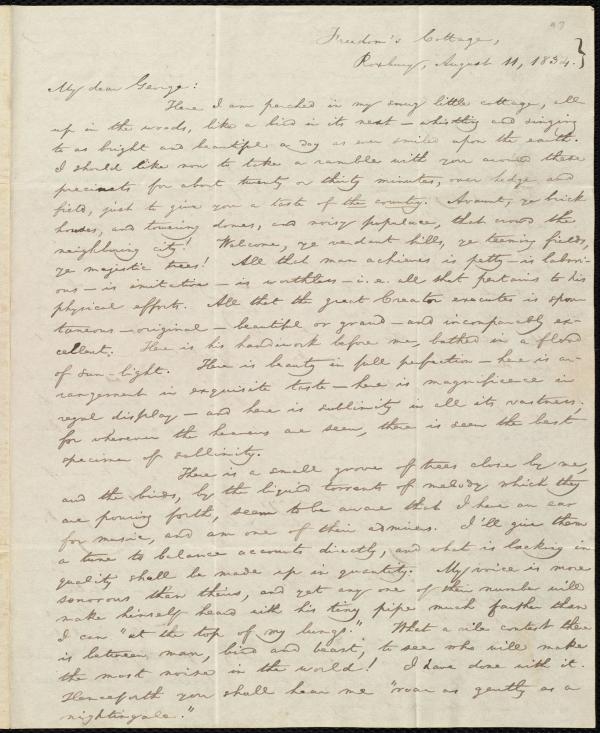 Freedom's Cottage,
Roxbury, August 11, 1834.
My dear George:
Here I am perched in my snug little cottage, all
up in the woods, like a bird in its nest — whistling and singing
to as bright and beautiful a day as ever smiled upon the earth.
I should like now to take a ramble with you around these
precincts for about twenty or thirty minutes, over hedge and
field, just to give you a taste of the country. Avaunt, ye brick
houses, and towering domes, and noisy populace, that crowd the
neighbouring city! Welcome, ye verdant hills, ye teeming fields,
ye majestic trees! All that man achieves is petty — is labori-
ous — is imitative — is worthless — i. e. all that pertains to his
physical efforts. All that the great Creator executes is spon-
taneous — original — beautiful or grand — and incomparably ex-
cellent. Here is his handiwork before me, bathed in a flood
of sun-light. Here is beauty in full perfection — here is ar-
rangement in exquisite taste — here is magnificence in
regal display — and here is sublimity in all its vastness;
for wherever the heavens are seen, there is seen the best
specimen of sublimity.
There is a small grove of trees close by me,
and the birds, by the liquid torrents of melody which they
are pouring forth, seem to be aware that I have an ear
for music, and am one of their admirers. I'll give them
a tune to balance accounts directly, and what is lacking in
quality shall be made up in quantity. My voice is more
sonorous than theirs, and yet any one of their number will
make himself heard with his tiny pipe much farther than
I can "at the top of my lungs." What a vile contest there
is between man, bird and beast, to see who will make
the most noise in the world! I have done with it.
Henceforth you shall hear me "roar as gently as a
nightingale."